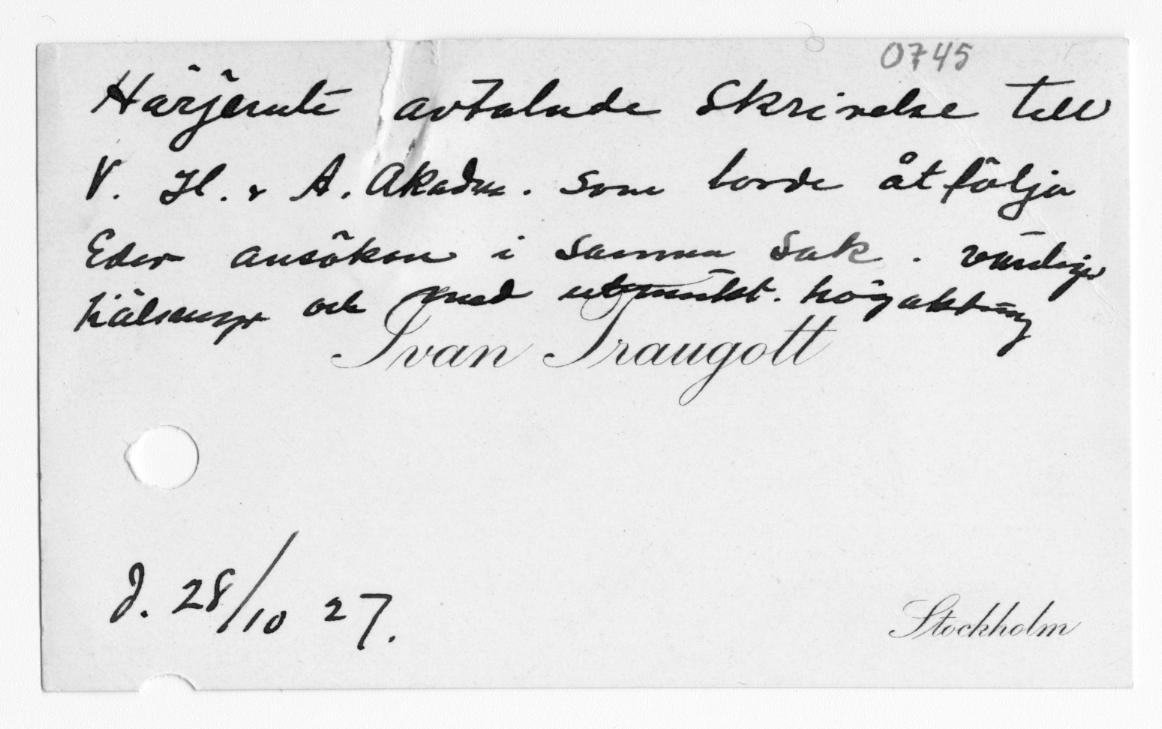 0745
Härjemte avtalade Skrivelse till
V. H. & A. Akadm. som torde åtfölja
Eder ansökan i samma sak. vänliga
hälsningar och med utmärkt. högaktning
Ivan Traugott
d. 28/10 27.
Stockholm